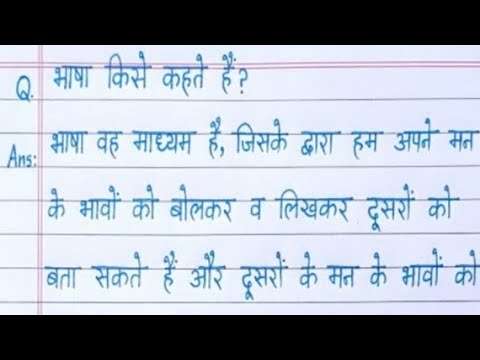 Q. भाषा किसे कहते हैं?
Ans: भाषा वह माध्यम है, जिसके द्वारा हम अपने मन
के भावों को बोलकर व लिखकर दूसरों को
बता सकते हैं और दूसरों के मन के भावों को